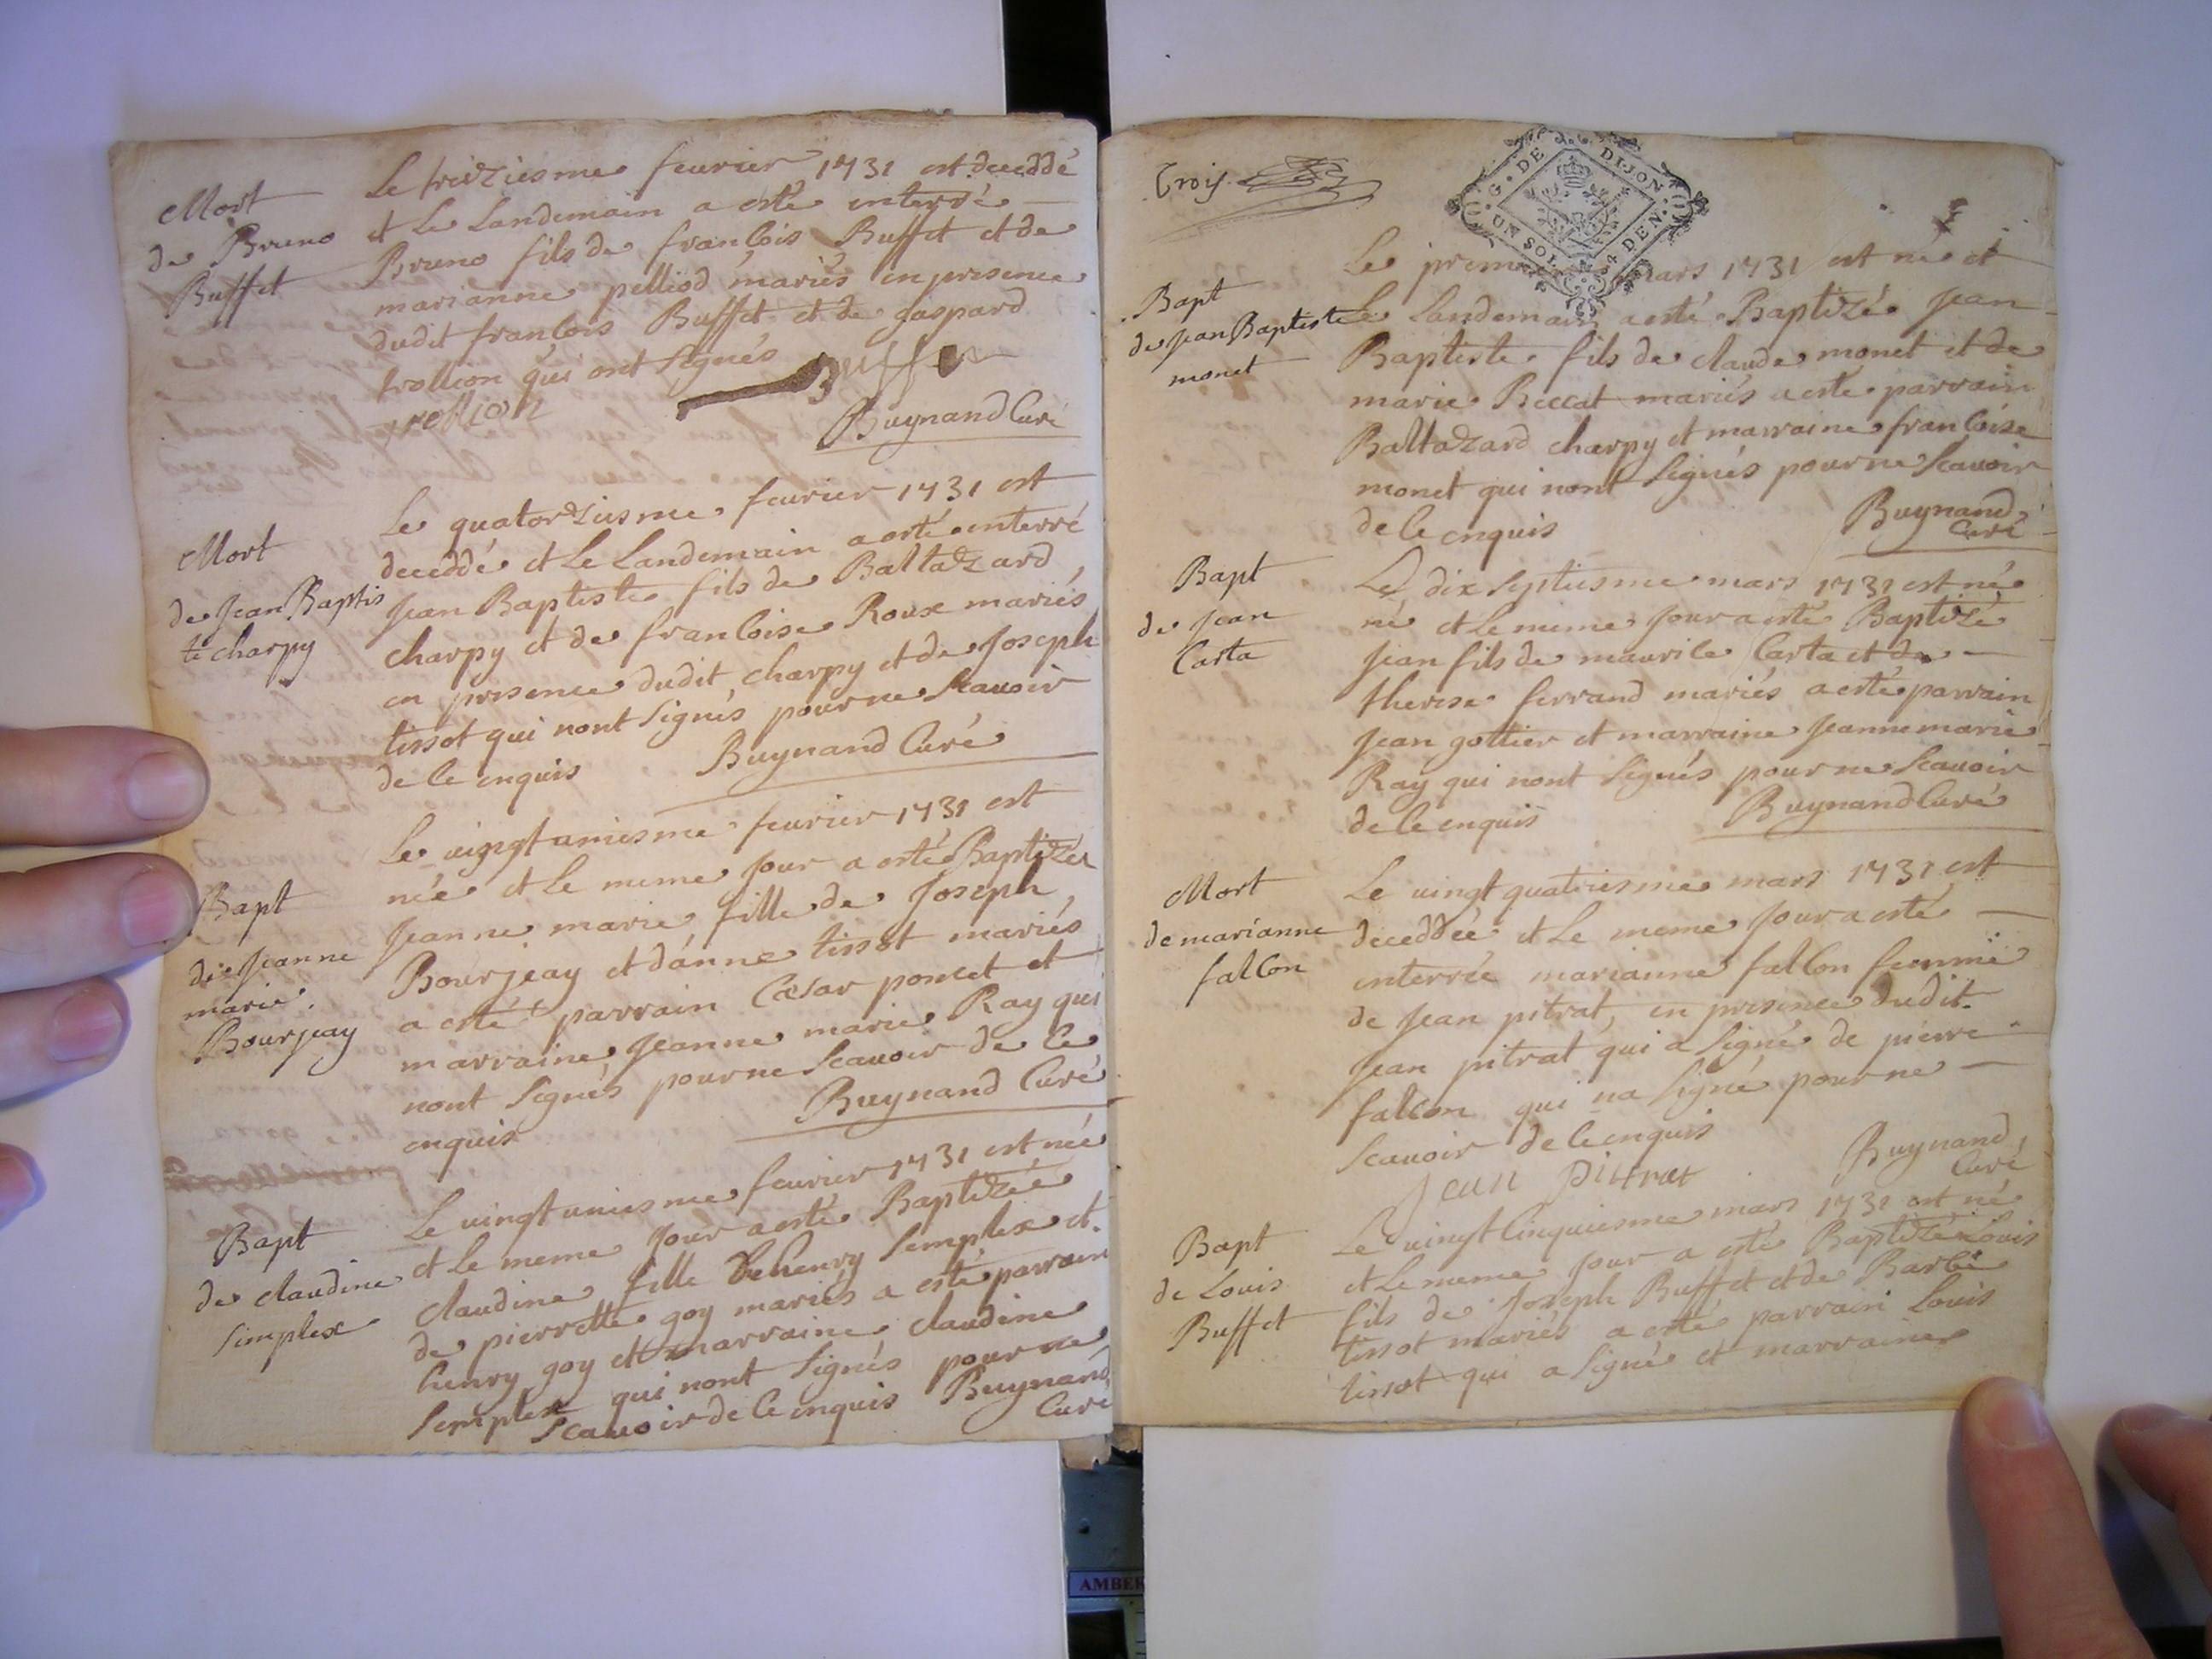 Mort
de Bruno
Buffet
Le treiziesme feurier 1731 est deceddé
et Le Landemain a esté interré
Bruno fils de francois Buffet et de
marianne pelliod mariés en presence
dudit francois Buffet et de gaspard
trollion qui ont Signés
trollion
Buffet
Buynand Curé
Mort
de Jean Baptis
te charpy
Le quatorziesme feurier 1731 est
deceddé et Le Landemain a esté interré
Jean Baptiste fils de Baltazard
charpy et de francoise Roux mariés
en presence dudit charpy et de Joseph
tissot qui nont Signés pour ne Scauoir
de ce enquis
Buynand Curé
Bapt
de Jeanne
marie
Bourjeay
Le vingt uniesme feurier 1731 est
née et Le meme Jour a esté Baptizée
Jeanne marie fille de Joseph
Bourjeay et danne tissot mariés
a esté parrain Cæsar poncet et
marraine Jeanne marie Ray qui
nont Signés pour ne Scauoir de ce
enquis
Buynand Curé
Bapt
de claudine
Simplex
Le vingt uniesme feurier 1731 est née
et Le meme Jour a esté Baptizée
claudine fille de henry Semplex et
de pierrette goy mariés a esté parrain
henry goy et marraine claudine
Semplex qui nont Signés pour ne
Scauoir de ce enquis Buynand
Curé
Trois
G. DE DIJON
UN SOL 4 DEN.
Bapt
de Jean Baptiste
monet
Le premier mars 1731 est né et
Le Landemain a esté Baptizé Jean
Baptiste fils de claude monet et de
marie Beccat mariés a esté parrain
Baltazard charpy et marraine francoise
monet qui nont Signés pour ne Scauoir
de ce enquis
Buynand
Curé
Bapt
de Jean
Carta
Le dix Septiesme mars 1731 est né
né et Le meme Jour a esté Baptizé
Jean fils de maurice Carta et de
therese ferrand mariés a esté parrain
Jean gottier et marraine Jeanne marie
Ray qui nont Signés pour ne Scauoir
de ce enquis
Buynand Curé
Mort
de marianne
falcon
Le vingt quatriesme mars 1731 est
deceddée et Le meme Jour a esté
interrée marianne falcon femme
de Jean pitrat, en presence dudit
Jean pitrat qui a Signé de pierre
falcon qui na Signé pour ne
Scauoir de ce enquis
Jean Pittrat
Buynand
Curé
Bapt
de Louis
Buffet
Le vingt Cinquiesme mars 1731 est né
et Le meme Jour a esté Baptizé Louis
fils de Joseph Buffet et de Barbe
tissot mariés a esté parrain Louis
tissot qui a Signé et marraine
AMBER